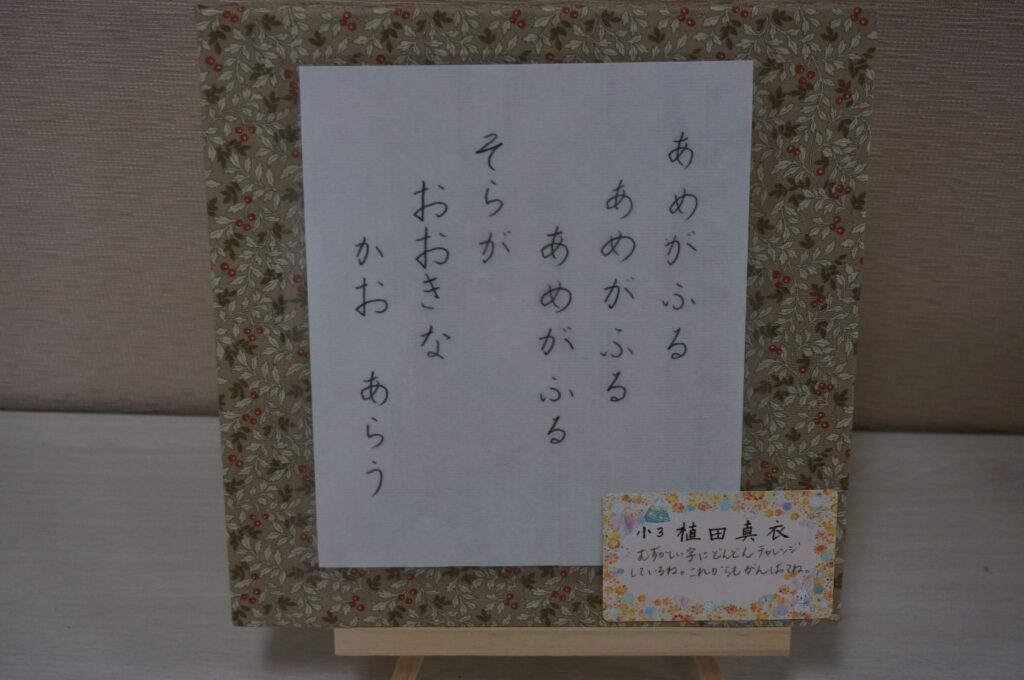 あめがふる
あめがふる
あめがふる
そらが
おおきな
かお　あらう
小3 植田真衣
むずかしい字にどんどんチャレンジ
しているね。これからもがんばってね。